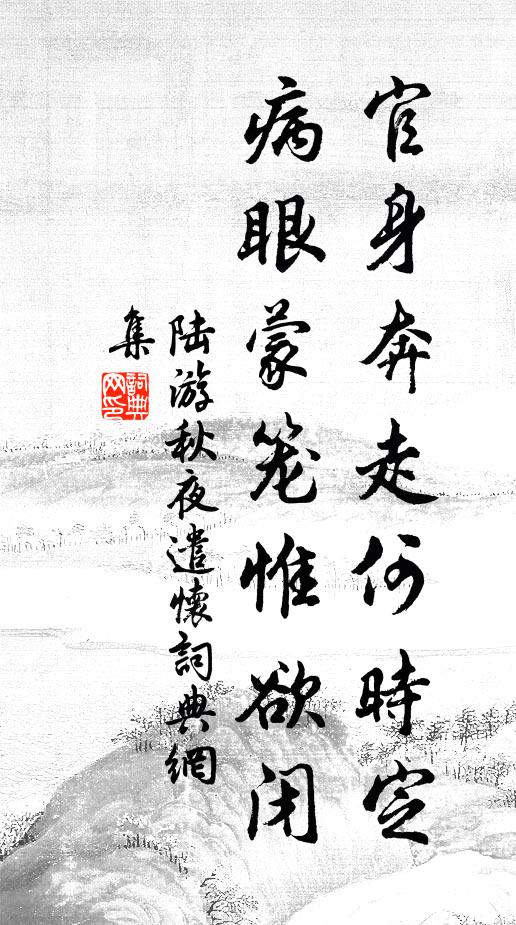 官身奔走何時定
病眼蒙笼惟欲闭
陆游秋夜遣懷詞典網
集
詞典网印